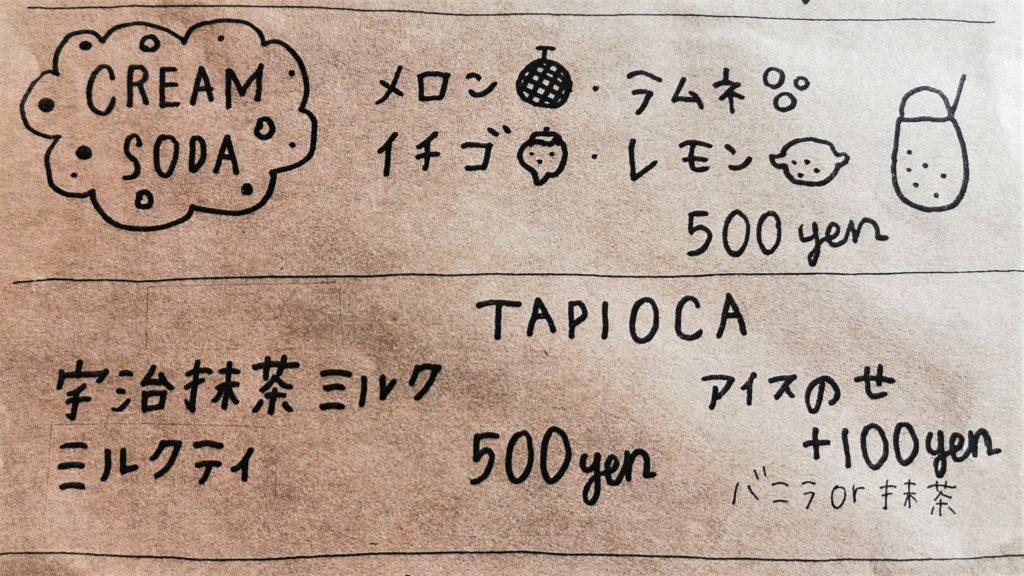 CREAM
SODA
メロン・ラムネ
イチゴ・レモン
500 yen
TAPIOCA
宇治抹茶ミルク
ミルクティ
500yen
アイスのせ
+100yen
バニラor抹茶